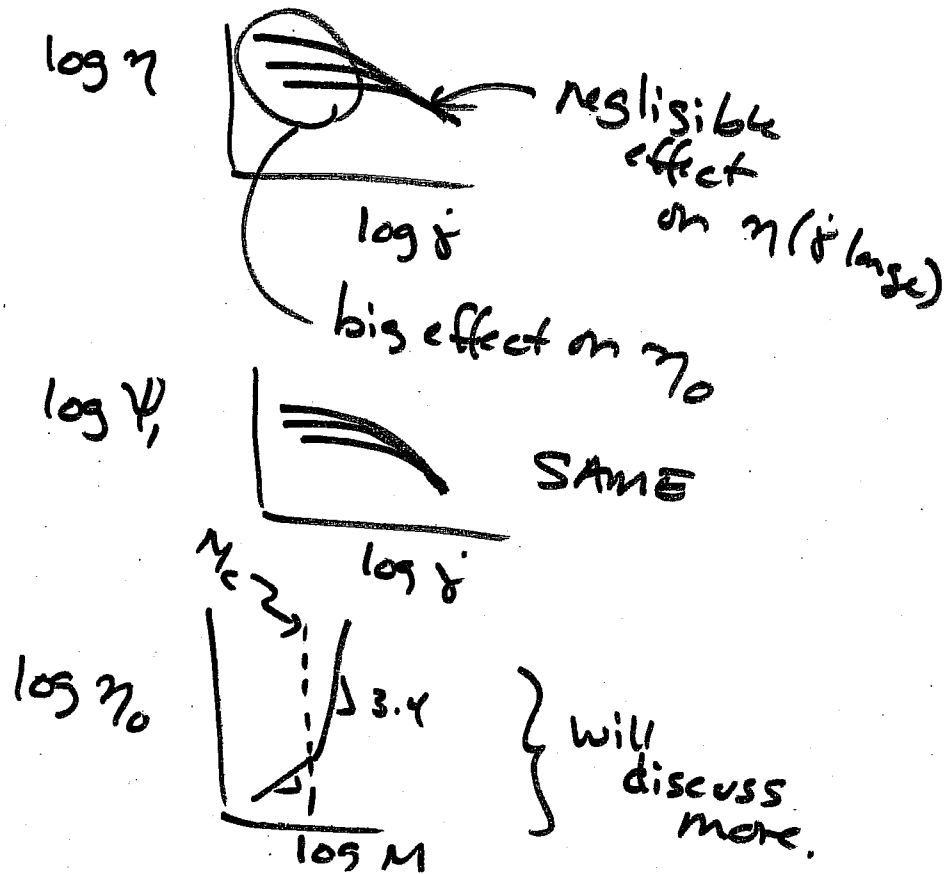 log η
negligible
effect
on η(γ̇ large)
log γ̇
big effect on η₀
log Ψ₁
SAME
log γ̇
M_c
log η₀
3.4
1
will
discuss
more.
log M